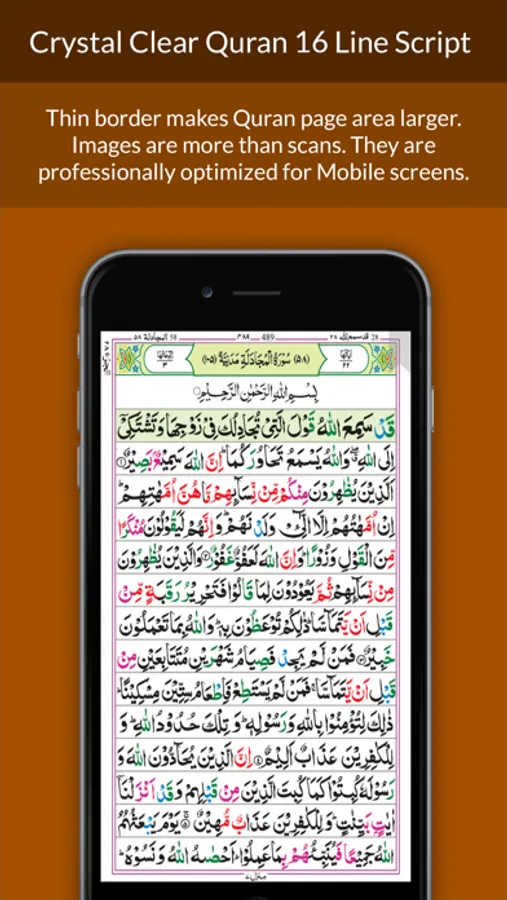 Crystal Clear Quran 16 Line Script
Thin border makes Quran page area larger.
Images are more than scans. They are
professionally optimized for Mobile screens.
المجادلة ٥٨ 58 ٤٨٩ 489 قد سمع الله ٢٨ 28
(٥٨) سُوْرَةُ الْمُجَادَلَةِ مَدَنِيَّةٌ (١٠٥)
اٰیاتها ٢٢
رکوعاتها ٣
بِسْمِ اللّٰهِ الرَّحْمٰنِ الرَّحِیْمِ
قَدْ سَمِعَ اللّٰهُ قَوْلَ الَّتِیْ تُجَادِلُكَ فِیْ زَوْجِهَا وَتَشْتَكِیْۤ
اِلَی اللّٰهِ ۖ وَاللّٰهُ یَسْمَعُ تَحَاوُرَكُمَا ؕ اِنَّ اللّٰهَ سَمِیْعٌۢ بَصِیْرٌ ۝۱
اَلَّذِیْنَ یُظٰهِرُوْنَ مِنْكُمْ مِّنْ نِّسَآىِٕهِمْ مَّا هُنَّ اُمَّهٰتِهِمْ ؕ
اِنْ اُمَّهٰتُهُمْ اِلَّا الّٰٓـِٔیْ وَلَدْنَهُمْ ؕ وَاِنَّهُمْ لَیَقُوْلُوْنَ مُنْكَرًا
مِّنَ الْقَوْلِ وَزُوْرًا ؕ وَاِنَّ اللّٰهَ لَعَفُوٌّ غَفُوْرٌ ۝۲ وَالَّذِیْنَ یُظٰهِرُوْنَ
مِنْ نِّسَآىِٕهِمْ ثُمَّ یَعُوْدُوْنَ لِمَا قَالُوْا فَتَحْرِیْرُ رَقَبَةٍ مِّنْ
قَبْلِ اَنْ یَّتَمَآسَّا ؕ ذٰلِكُمْ تُوْعَظُوْنَ بِهٖ ؕ وَاللّٰهُ بِمَا تَعْمَلُوْنَ
خَبِیْرٌ ۝۳ فَمَنْ لَّمْ یَجِدْ فَصِیَامُ شَهْرَیْنِ مُتَتَابِعَیْنِ مِنْ
قَبْلِ اَنْ یَّتَمَآسَّا ۚ فَمَنْ لَّمْ یَسْتَطِعْ فَاِطْعَامُ سِتِّیْنَ مِسْكِیْنًا ؕ
ذٰلِكَ لِتُؤْمِنُوْا بِاللّٰهِ وَرَسُوْلِهٖ ؕ وَتِلْكَ حُدُوْدُ اللّٰهِ ؕ وَ
لِلْكٰفِرِیْنَ عَذَابٌ اَلِیْمٌ ۝۴ اِنَّ الَّذِیْنَ یُحَآدُّوْنَ اللّٰهَ وَ
رَسُوْلَهٗ كُبِتُوْا كَمَا كُبِتَ الَّذِیْنَ مِنْ قَبْلِهِمْ وَقَدْ اَنْزَلْنَاۤ
اٰیٰتٍۭ بَیِّنٰتٍ ؕ وَلِلْكٰفِرِیْنَ عَذَابٌ مُّهِیْنٌ ۝۵ یَوْمَ یَبْعَثُهُمُ
اللّٰهُ جَمِیْعًا فَیُنَبِّئُهُمْ بِمَا عَمِلُوْا ؕ اَحْصٰىهُ اللّٰهُ وَنَسُوْهُ ؕ